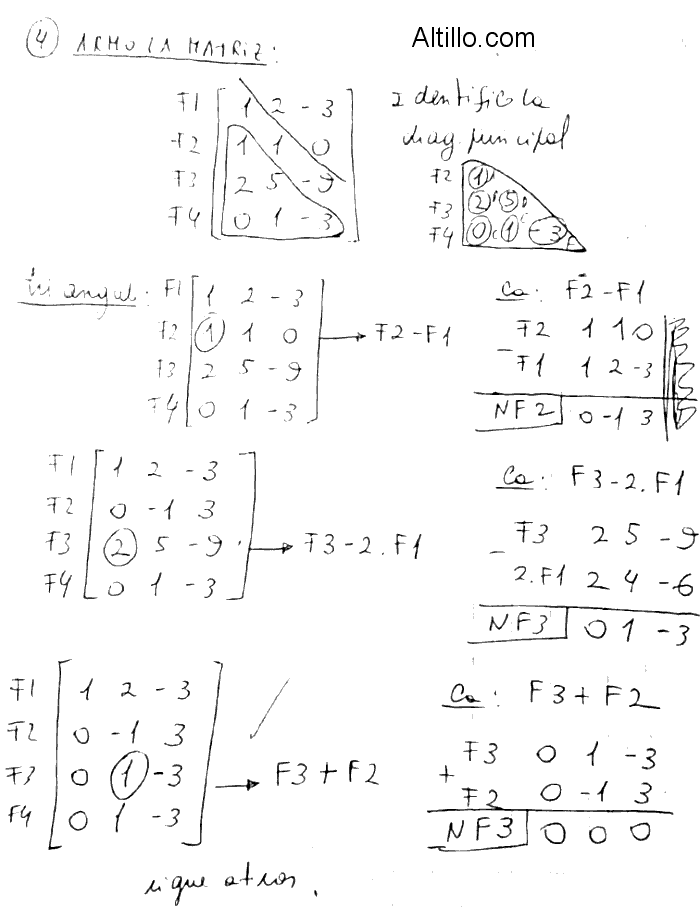 Altillo.com
④ ARMO LA MATRIZ:
F1 1 2 -3
F2 1 1 0
F3 2 5 -9
F4 0 1 -3
Identifico la
diag. principal
F2 1
F3 2 5
F4 0 1 -3
triangul: F1 1 2 -3
F2 1 1 0 → F2-F1
F3 2 5 -9
F4 0 1 -3
Ca: F2-F1
F2 1 1 0
- F1 1 2 -3
NF2 0 -1 3
F1 1 2 -3
F2 0 -1 3
F3 2 5 -9 → F3-2.F1
F4 0 1 -3
Ca: F3-2.F1
- F3 2 5 -9
2.F1 2 4 -6
NF3 0 1 -3
F1 1 2 -3
F2 0 -1 3
F3 0 1 -3 → F3+F2
F4 0 1 -3
Ca: F3+F2
F3 0 1 -3
+ F2 0 -1 3
NF3 0 0 0
sigue atras.